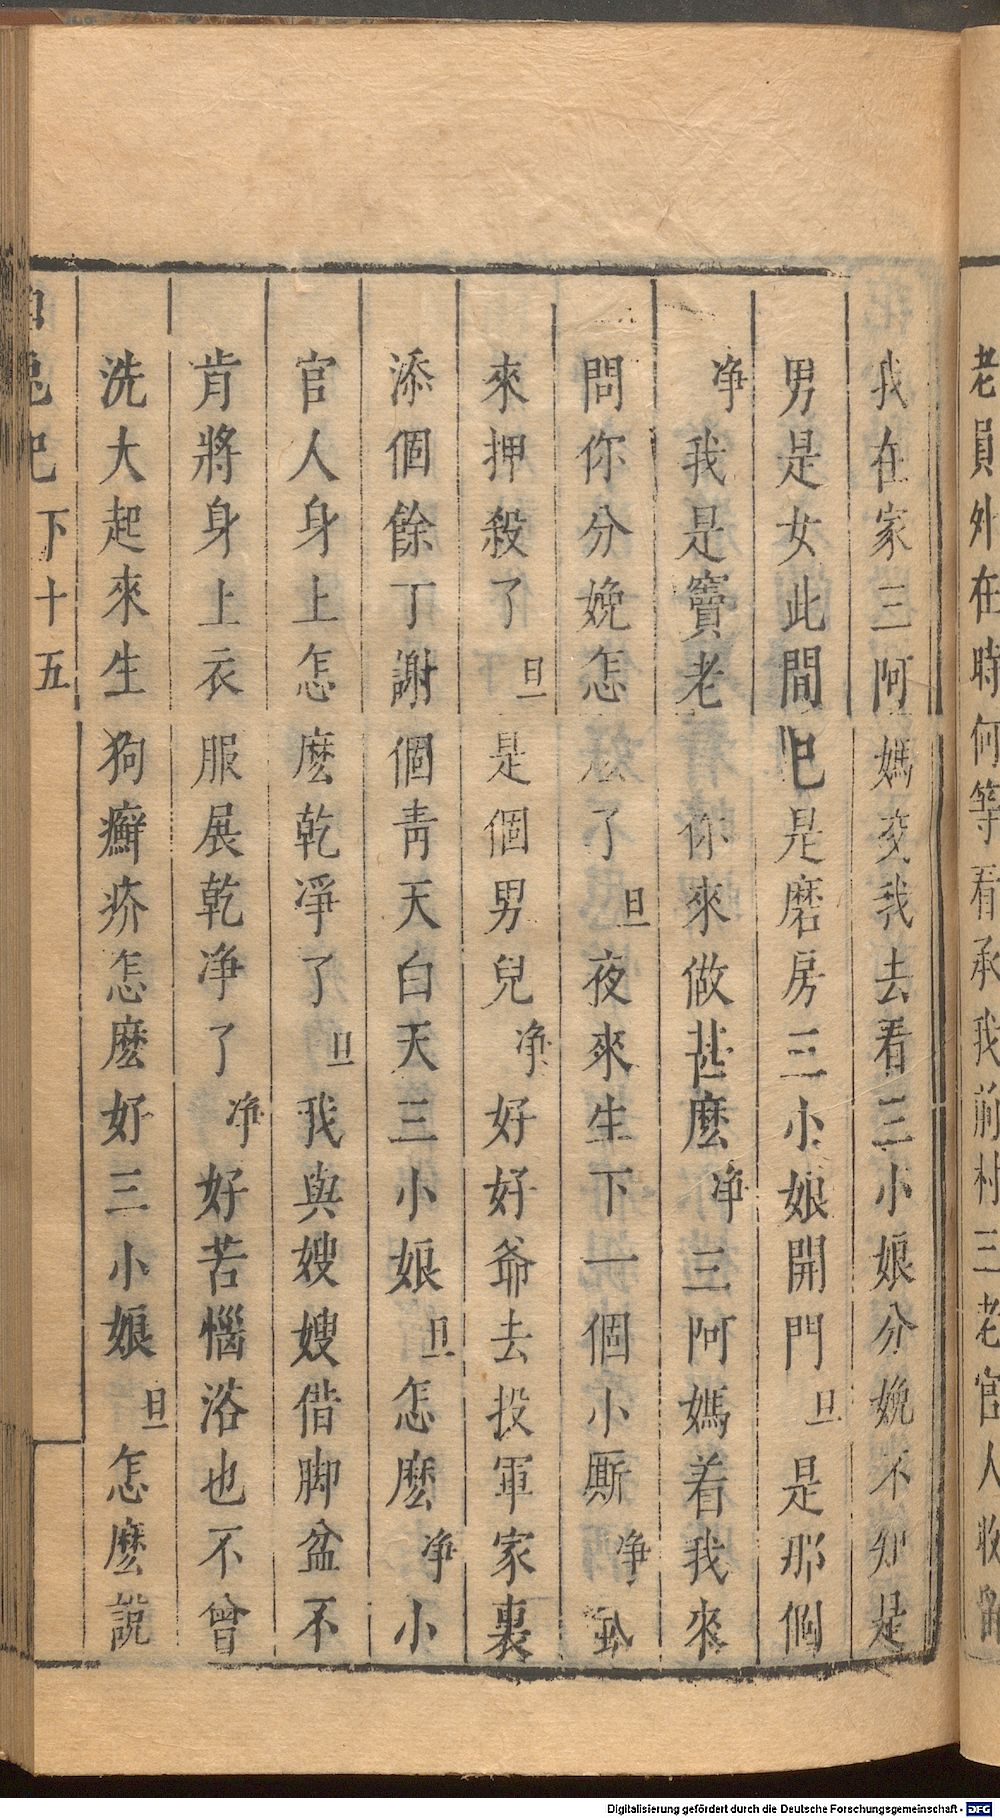 老員外在時何等看承我前村三老官人收留
我在家三阿媽交我去看三小娘分娩不知是
男是女此間已是磨房三小娘開門旦是那個
净我是竇老你來做甚麽净三阿媽着我來
問你分娩怎么了旦夜來生下一個小厮净
來押殺了旦是個男兒净好好爺去投軍家裏
添個餘丁謝個青天白天三小娘旦怎麽净小
官人身上怎麽乾淨了旦我與嫂嫂借脚盆不
肯將身上衣服展乾净了净好苦惱浴也不曾
洗大起來生狗癬疥怎麽好三小娘旦怎麽説
兔記下十五
Digitalisierung gefördert durch die Deutsche Forschungsgemeinschaft - DFG